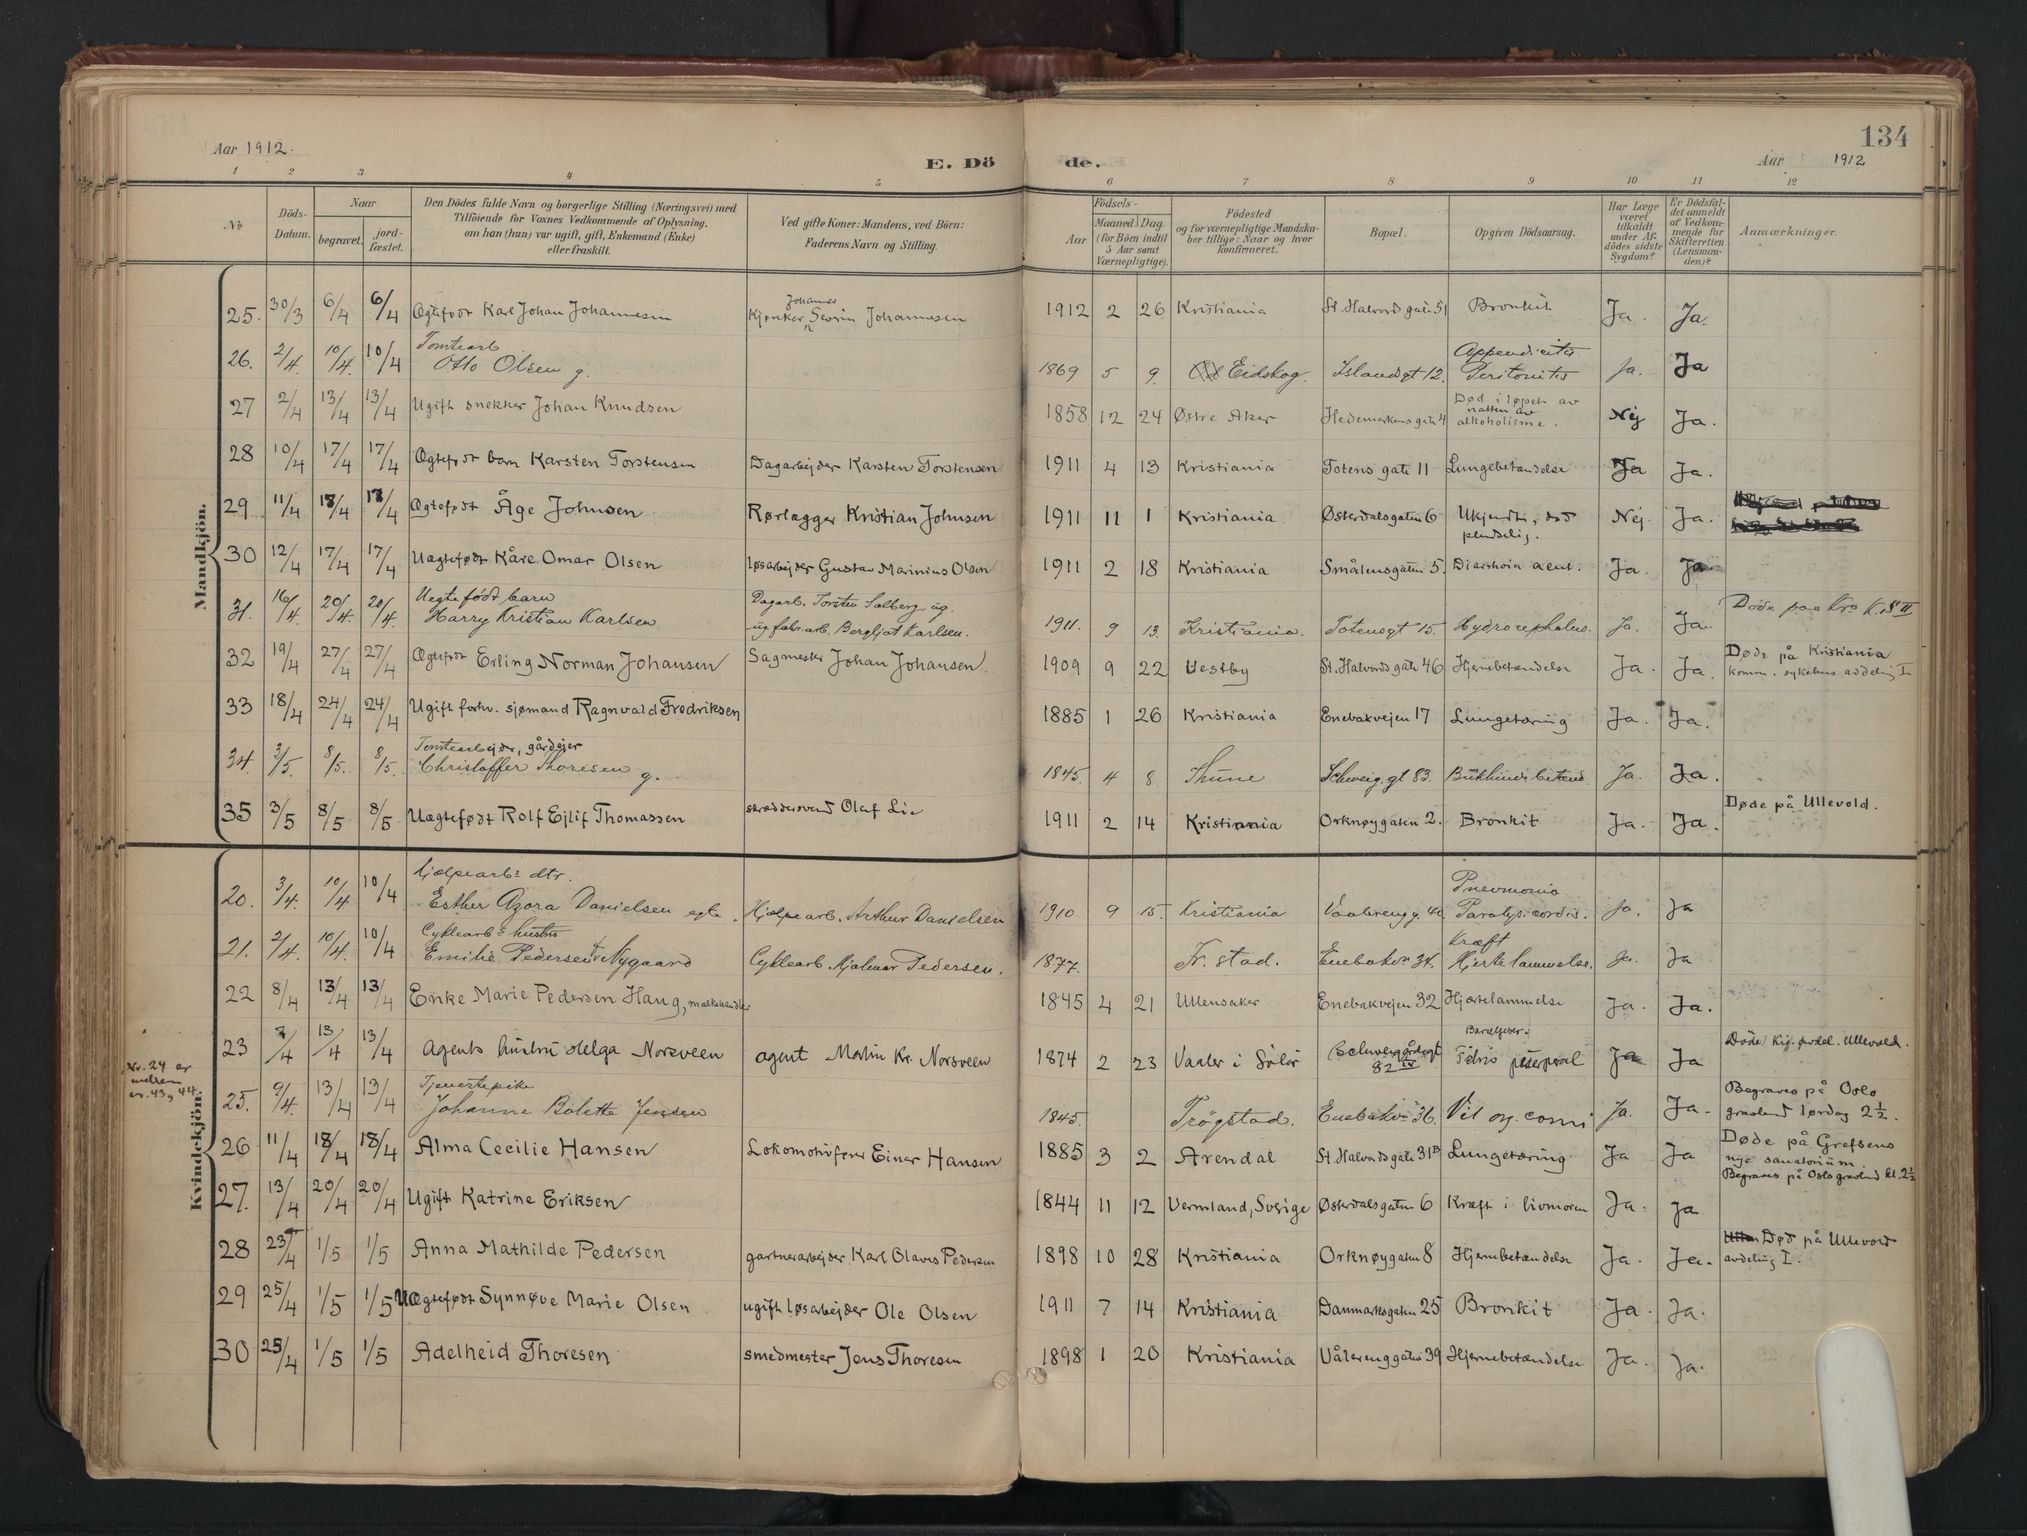 134
Aar 1912.
E. Dö
de.
Aar 1912
1 2 3 4 5 6 7 8 9 10 11 12
No
Döds-Datum.
Naar
begravet.
jord-fæstet.
Den Dödes fulde Navn og borgerlige Stilling (Næringsvei) med
Tilföiende for Voxnes Vedkommende af Oplysning,
om han (hun) var ugift, gift, Enkemand (Enke)
eller fraskilt.
Ved gifte Koner: Mandens, ved Börn:
Faderens Navn og Stilling.
Födsels-
Aar
Maaned Dag.
(for Börn indtil
5 Aar samt
Værnepligtige).
Födested
og for værnepligtige Mandska-
ber tillige: Naar og hvor
konfirmeret.
Bopæl.
Opgiven Dödsaarsag.
Har Læge
været
tilkaldt
under Af-
dödes sidste
Sygdom?
Er Dödsfal-
det anmeldt
af Vedkom-
mende for
Skifteretten
(Lensman-
den)?
Anmærkninger.
Mandkjön.
25. 30/3 6/4 6/4 Ægtefødt Karl Johan Johannesen Johannes Severin Johannesen 1912 2 26 Kristiania St. Halvards gate 51 Bronkit Ja. Ja.
26. 2/4. 10/4. 10/4 Tomtearb Otto Olsen g. 1869 5 9. Eidskog. Islandsgt 12. Appendicitis Peritonitis Ja. Ja
27 2/4 13/4 13/4 Ugift snekker Johan Knudsen 1858 12 24 Østre Aker Hedemarkens gate 4 Død i løpet av natten av alkoholisme. Nej Ja.
28 10/4 17/4 17/4 Ægtefødt barn Karsten Torstensen Dagarbejder Karsten Torstensen 1911 4 13 Kristiania Totens gate 11 Lungebetændelse Ja Ja.
29 11/4 18/4 18/4 Ægtefødt Åge Johnsen Rørlægger Kristian Johnsen 1911 11 1 Kristiania Østerdalsgaten 6 Ukjendt, død pludselig. Nej. Ja.
30 12/4 17/4 17/4 Uægtefødt Kåre Omar Olsen løsarbejder Gustav Marinius Olsen 1911 2 18 Kristiania Smålensgaten 5. Diarrhoia acut. Ja. Ja.
31. 16/4. 20/4. 20/4. Uegte födt barn Harry Kristian Karlsen Dagarb. Torsten Solberg ug. ug fabr.arb. Bergljot Karlsen. 1911. 9 13. Kristiania. Totensgt 15. Hydrocephalus. Ja. Ja. Döde paa Kra K.S II
32 19/4 27/4 27/4 Ægtefødt Erling Norman Johansen Sagmester Johan Johansen 1909 9 22 Vestby St. Halvards gate 46 Hjernebetændelse Ja. Ja. Døde på Kristiania komm. sykehus avdeling I
33 18/4 24/4 24/4 Ugift forhv. sjømand Ragnvald Fredriksen 1885 1 26 Kristiania Enebakvejen 17 Lungetæring Ja. Ja.
34. 3/5. 8/5. 8/5. Tomtearbejder, gårdejer Christoffer Thoresen g. 1845 4 8. Schweig.gt 83. Ja. Ja.
35 3/5 8/5 8/5 Uægtefødt Rolf Ejlif Thomassen skræddersvend Olaf Lie 1911 2 14 Kristiania Orknøygaten 2. Bronkit Ja. Ja. Døde på Ullevold.
Kvindekjön.
20. 3/4. 10/4 10/4 Hjælpearb.s dtr. Esther Azora Danielsen egte. Hjælpearb. Arthur Danielsen 1910 9 15. Kristiania Vaalerengg. 40 Pnevmonia Paralys. cordis. Ja. Ja
21. 2/4. 10/4. 10/4 Cyklearb.s hustru Emilie Pedersen f. Nygaard Cyklearb. Hjalmar Pedersen. 1877. Fr. stad. Enebakv. 34. Kræft Hjertelammelse. Ja. Ja
22 8/4 13/4 13/4 Enke Marie Pedersen Haug, melkehandler 1845 4 21 Ullensaker Enebakvejen 32 Hjertelammelse Ja. Ja.
23 7/4 13/4 13/4 Agents hustru Helga Norsveen agent Martin Kr. Norsveen 1874 2 23 Vaaler i Solör Schweigårdsgt 82 IV Barselfeber. Febris puerperal Ja Ja Döde Kir. avdel. Ullevold.
Nr. 24 er mellem nr. 43 og 44.
25. 9/4. 13/4 13/4 Tjenestepike Johanne Bolette Jensen 1845. Trögstad. Enebakv. 36. Vit. org. cordis Ja. Ja. Begraves på Oslo gravlund lørdag 2½.
26 11/4 18/4 18/4 Alma Cecilie Hansen Lokomotivfører Einar Hansen 1885 3 2 Arendal St. Halvards gate 31B Lungetæring. Ja Ja Døde på Grefsens nye sanatorium. Begraves på Oslo gravlund kl. 2½
27. 13/4 20/4 20/4 Ugift Katrine Eriksen 1844 11 12 Vermland, Sverige Østerdalsgaten 6 Kræft i livmoren Ja. Ja
28 23/4 1/5 1/5 Anna Mathilde Pedersen gartnerarbejder Karl Olaves Pedersen 1898 10 28 Kristiania Orknøygaten 8 Hjernebetændelse Ja. Ja. Død på Ullevold avdeling I.
29 25/4 1/5 1/5 Uægtefødt Synnøve Marie Olsen ugift løsarbejder Ole Olsen 1911 7 14 Kristiania Danmarksgaten 25 Bronkit Ja. Ja.
30 25/4 1/5 1/5 Adelheid Thoresen smedmester Jens Thoresen 1898 1 20 Kristiania Vålerenggaten 39 Hjernebetændelse Ja. Ja.